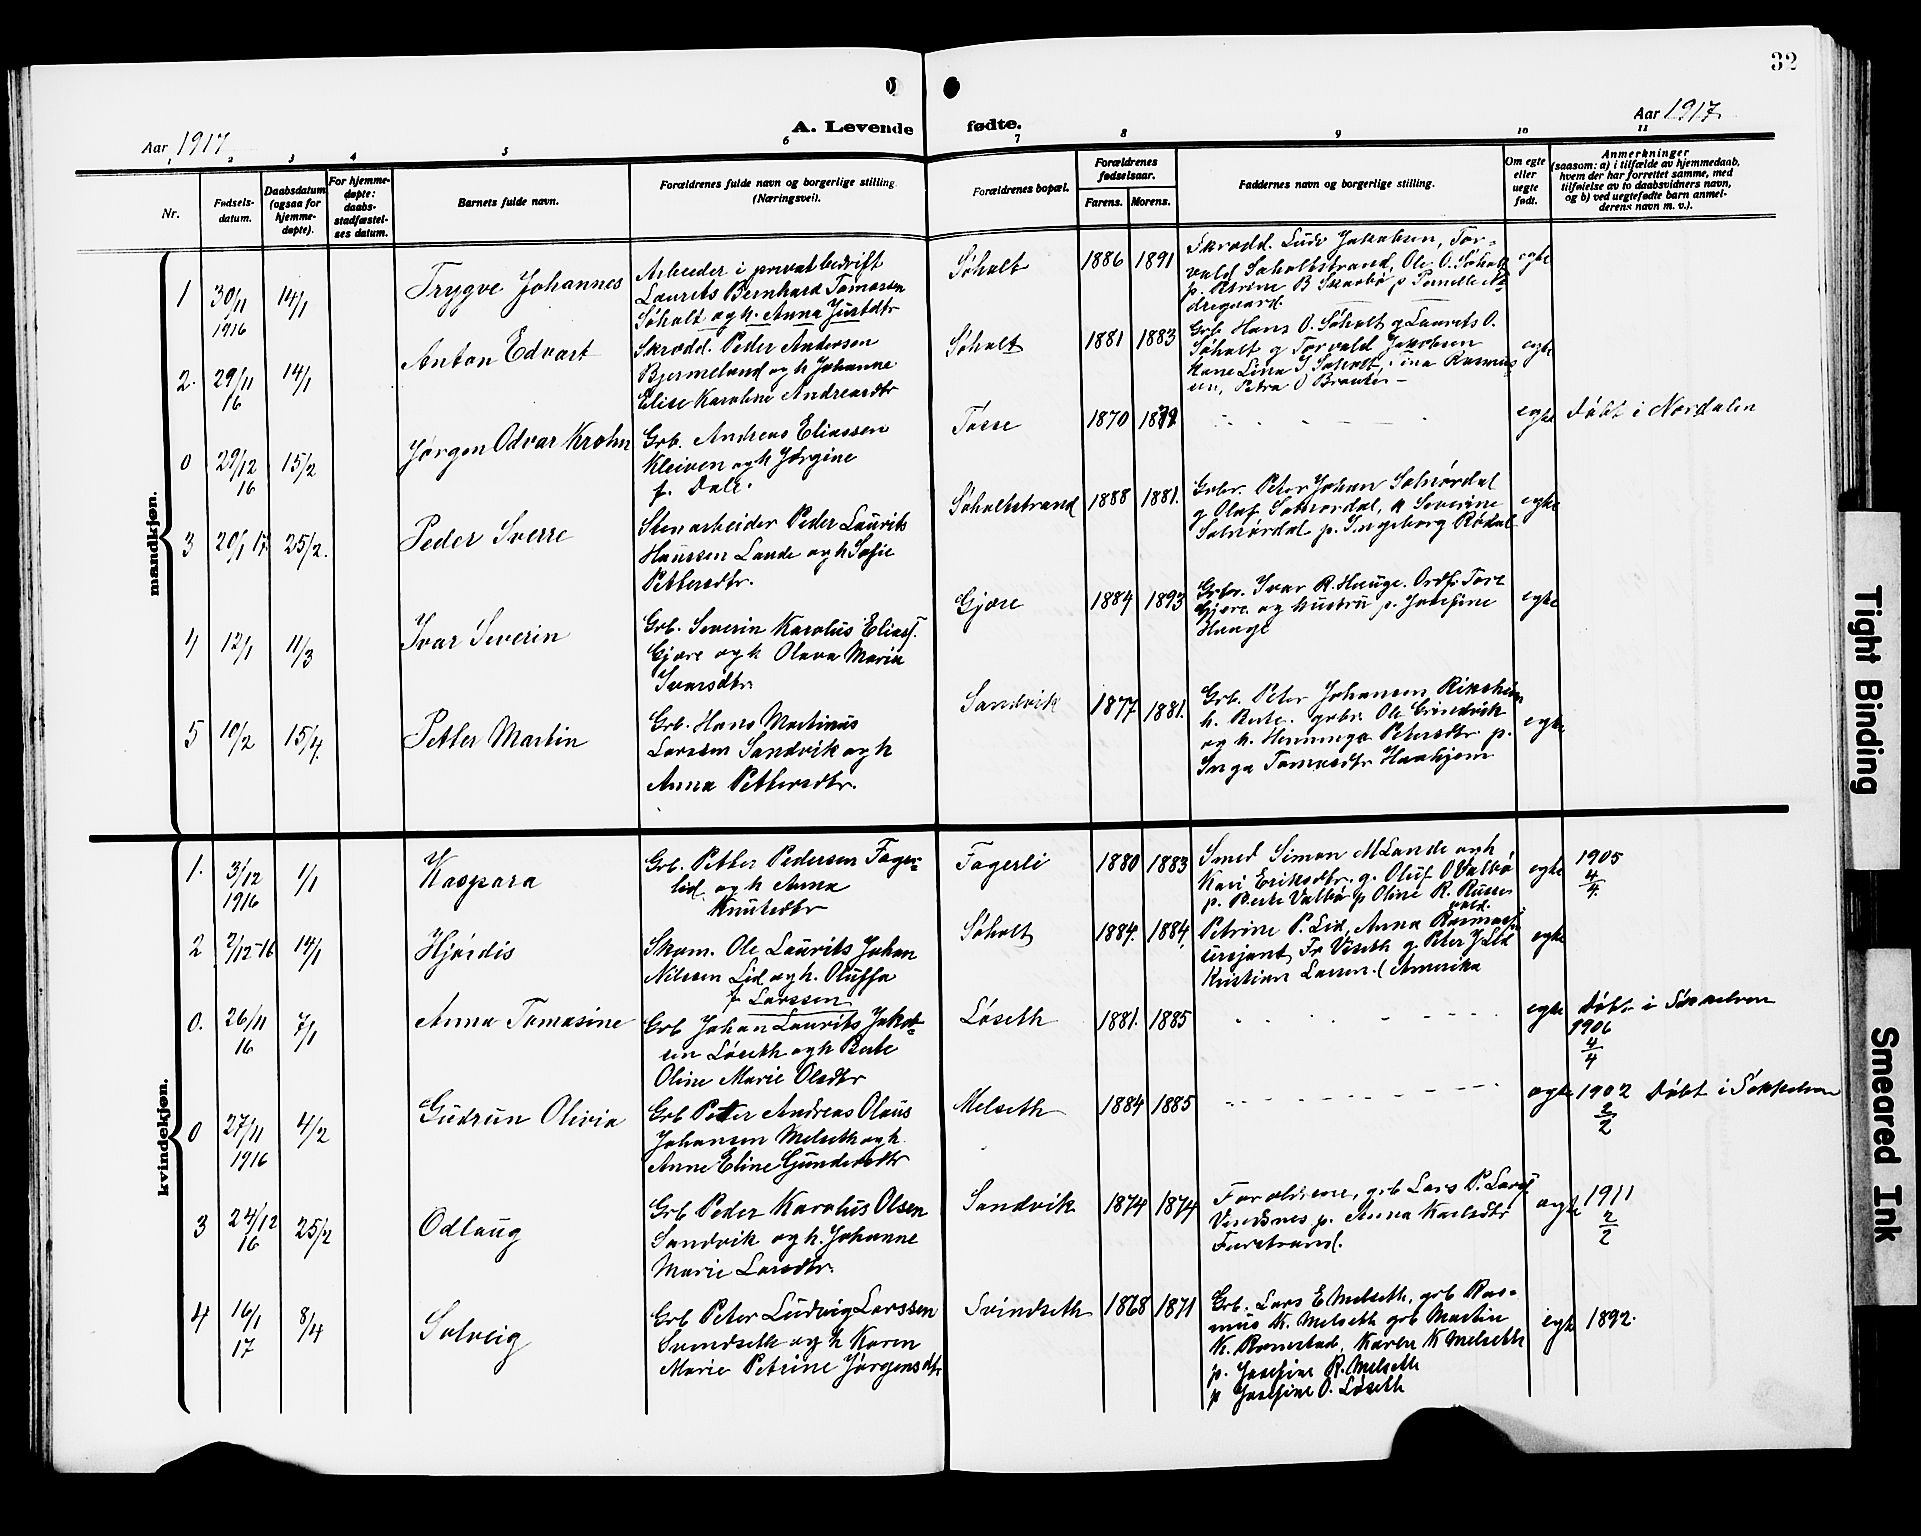 32
Aar 1917
A. Levende fødte.
Aar 1917
1 2 3 4 5 6 7 8 9 10 11
Nr.
Fødsels-
datum.
Daabsdatum
(ogsaa for
hjemme-
døpte).
For hjemme-
døpte:
daabs-
stadfæstel-
ses datum.
Barnets fulde navn.
Forældrenes fulde navn og borgerlige stilling
(Næringsvei).
Forældrenes bopæl.
Forældrenes
fødselsaar.
Farens. Morens.
Faddernes navn og borgerlige stilling.
Om egte
eller
uegte
født.
Anmerkninger
(saasom: a) i tilfælde av hjemmedaab,
hvem der har forrettet samme, med
tilføielse av to daabsvidners navn,
og b) ved uegtefødte barn anmel-
derens navn m. v.).
mandkjøn.
1 30/11 1916 14/1 Trygve Johannes
Arbeider i privatbedrift
Laurits Bernhard Tomasen
Søholt og h. Anna Justdtr
Søholt 1886 1891
Skrædd. Ludv Jakobsen, Tor-
vald Søholtstrand, Ole O. Søholt
p. Petrine B Skarbø p Pernille N-
dregaard
egte
2. 29/11 16 14/1 Anton Edvart
Skrædd. Peder Andersen
Bjermeland og h Johanne
Elise Karoline Andreasdtr
Søholt 1881 1883
Grb. Hans O. Søholt g Laurits O.
Søholt g Torvald Jakobsen
kone Lina S Søholt,
Petra O Brauter -
egte
0 29/12 16 15/2 Jørgen Odvar Krohn
Grb. Andreas Eliassen
Kleiven og h Jørgine
f. Dale.
1870
egte døbt i Nordalen
3 20/1 17. 25/2. Peder Sverre
Stenarbeider Peder Laurits
Hanssen Lande og h Sofie
Pettersdtr.
Søholtstrand 1888 1881.
Grbr. Peter Johan Solnørdal
g Olaf Solnørdal, k Severine
Solnørdal p. Ingeborg Rødal
egte
4 12/1 11/3 Ivar Severin
Grb. Severin Karolus Eliasf.
Gjære og h Olava Marie
Ivarsdtr.
Gjære 1884 1893
Grbr. Ivar R. Hauge. Ordf. Tore
Gjære og hustru p. Josefine
Hauge
egte
5 10/2 15/4. Petter Martin
Grb. Hans Martinus
Larssen Sandvik og h
Anna Pettersdtr.
Sandvik 1877 1881.
Grb. Peter Johansen
h. Berte. grbr. Ole
og h. Henninga Petersdtr. p.
Inga Tomasdtr Haahjem
egte
kvindekjøn.
1. 31/12 1916 1/1 Kaspara
Grb. Petter Pedersen Fager-
lid og h Anna
Knutsdtr
Fagerli 1880 1883
Smed Simon M Lande og h
Kari Eriksdtr. g. Oluf O Valbø
p. Berte Valbø p Oline R. Russe-
vold.
egte 1905 4/4
2 2/12-16 14/1 Hjørdis
Skom. Ole Laurits Johan
Nilssen Lid og h. Oluffa
f Larssen
Søholt 1884. 1884.
Petrine P. Lid, Anna Rasmusf
sersjant Fr Viseth g Peter J Lid
Kristian Larsen (Amerika
egte
0. 26/11 16 7/1 Anna Tomasine
Grb Johan Laurits Jakob-
sen Løseth og h Berte
Oline Marie Olsdtr
Løseth 1881. 1885
egte Døbt i Søkkelven
1906 4/4
0 27/11 1916 4/2 Gudrun Olivia
Grb Peter Andreas Olaus
Johansen Melseth og h.
Anne Eline Gundersdtr
Melseth 1884 1885
egte 1902 2/2 Døbt i Søkkelven
3 24/12 16 25/2 Odlaug
Grb Peder Karolus Olsen
Sandvik og h. Johanne
Marie Larsdtr.
Sandvik 1874 1874
Forældrene, grb Lars P. Larsf
p. Anna Karlsdtr
Furstrand.
egte 1911 2/2
4 16/1 17 8/4 Solveig
Grb Peter Ludvig Larssen
Svindseth og h Karen
Marie Petrine Jørgensdtr
Svindseth 1868 1871
Grb. Lars E Melseth, grb Ras-
mus K. Melseth grb Martin
K. Ramstad, Karen K Melseth
p. Josefine R. Melseth
p Josefine O. Løseth
egte 1892.
Tight Binding
Smeared Ink